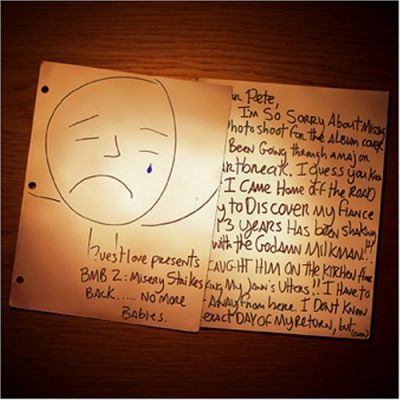 ?uestlove presents
BMB 2: Misery Strikes
BACK..... NO MORE
Babies.
Pete,
I'm So Sorry About Missing
Photo shoot for the ALBUM
Been Going through a major
I guess you know
I CAME HOME Off the ROAD
to DISCOVER my FIANCE
3 YEARS HAS been Shaking
with the GodAMN MILKMAN!!!
CAUGHT HIM ON the KITCHEN floor
My 's Utters!! I HAVE to
AWAY from here. I Don't Know
EXACT DAY OF My RETURN, but (over)